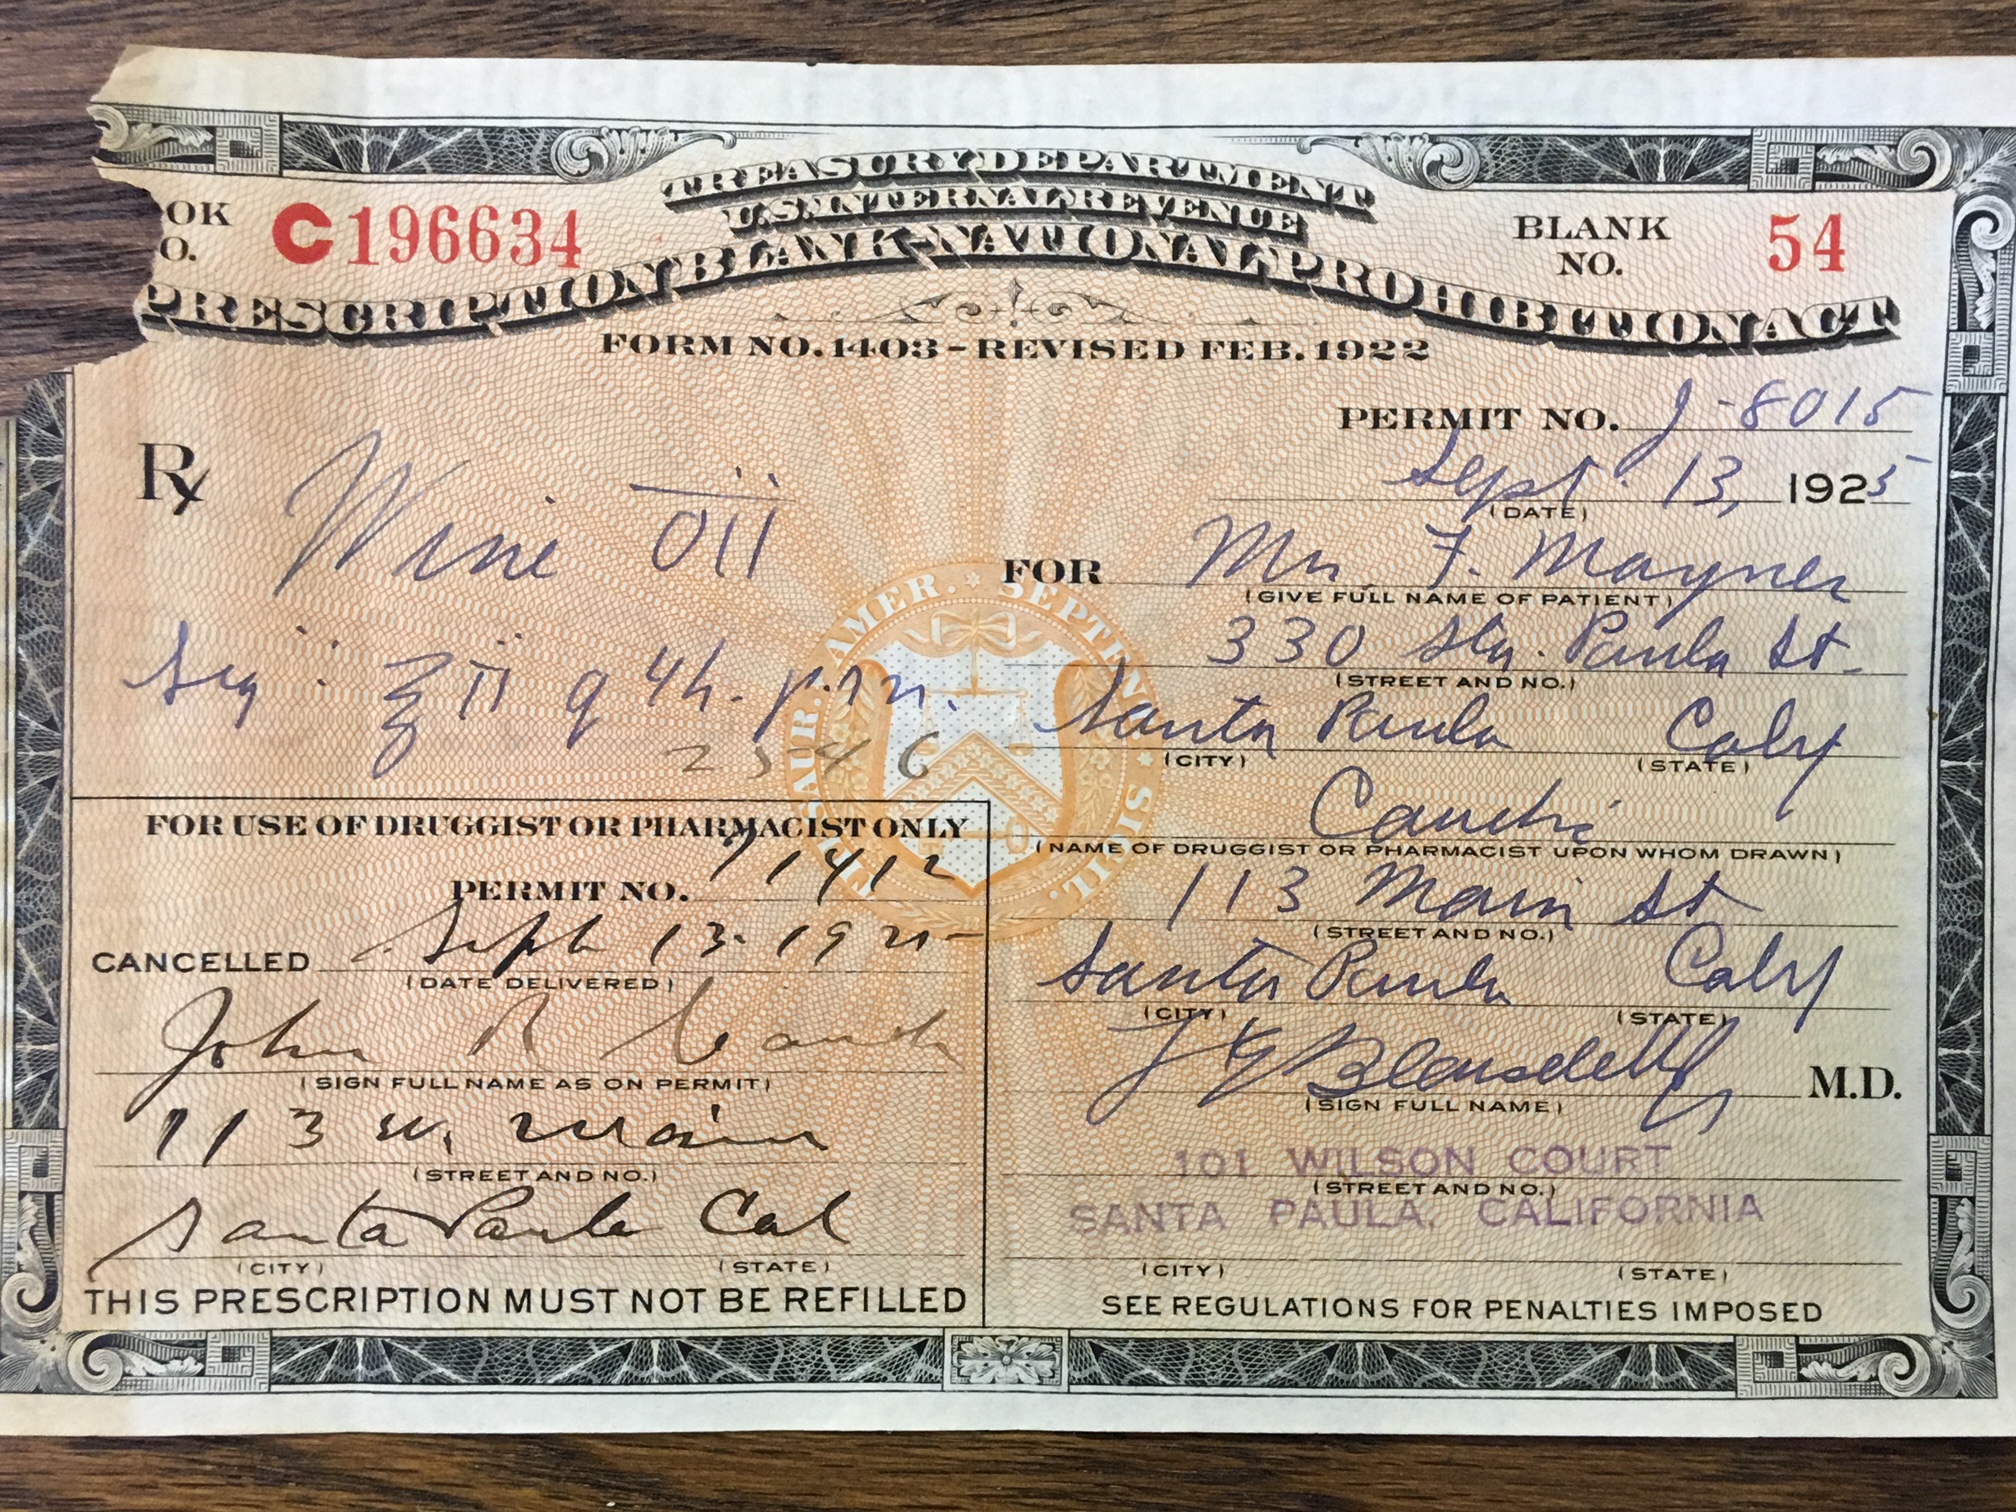 TREASURY DEPARTMENT
U.S. INTERNAL REVENUE
OK
O. C196634
BLANK
NO. 54
PRESCRIPTION BLANK-NATIONAL PROHIBITION ACT
FORM NO. 1403 - REVISED FEB. 1922
PERMIT NO. J-8015
Sept. 13, 1925
(DATE)
Rx Wine Oii
Sig: ℥ ii q 4h. p.r.n.
2546
FOR Mr. F. Mayner
(GIVE FULL NAME OF PATIENT)
330 Sta. Paula St.
(STREET AND NO.)
Santa Paula Calif
(CITY) (STATE)
(NAME OF DRUGGIST OR PHARMACIST UPON WHOM DRAWN)
113 Main St
(STREET AND NO.)
Santa Paula Calif
(CITY) (STATE)
M.D.
(SIGN FULL NAME)
101 WILSON COURT
(STREET AND NO.)
SANTA PAULA, CALIFORNIA
(CITY) (STATE)
SEE REGULATIONS FOR PENALTIES IMPOSED
THESAUR. AMER. SEPTENT. SIGIL.
FOR USE OF DRUGGIST OR PHARMACIST ONLY
PERMIT NO. 1412
CANCELLED Sept 13. 1925
(DATE DELIVERED)
John R
(SIGN FULL NAME AS ON PERMIT)
113 W. Main
(STREET AND NO.)
Santa Paula Cal
(CITY) (STATE)
THIS PRESCRIPTION MUST NOT BE REFILLED